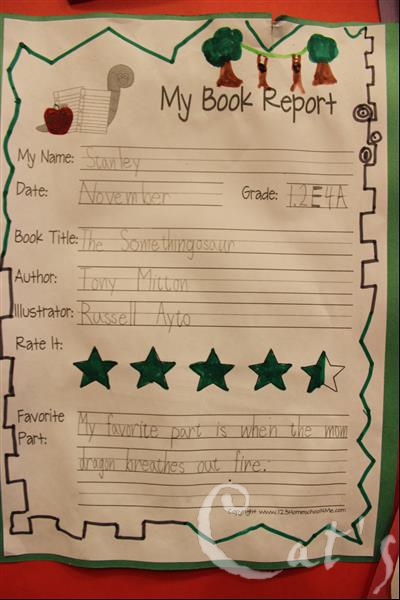 My Book Report
My Name: Stanley
Date: November Grade: 1.2E4A
Book Title: The Somethingosaur
Author: Tony Mitton
Illustrator: Russell Ayto
Rate It:
Favorite My favorite part is when the mom
Part: dragon breathes out fire.
Copyright www.123HomeschoolMe.com
Cat's